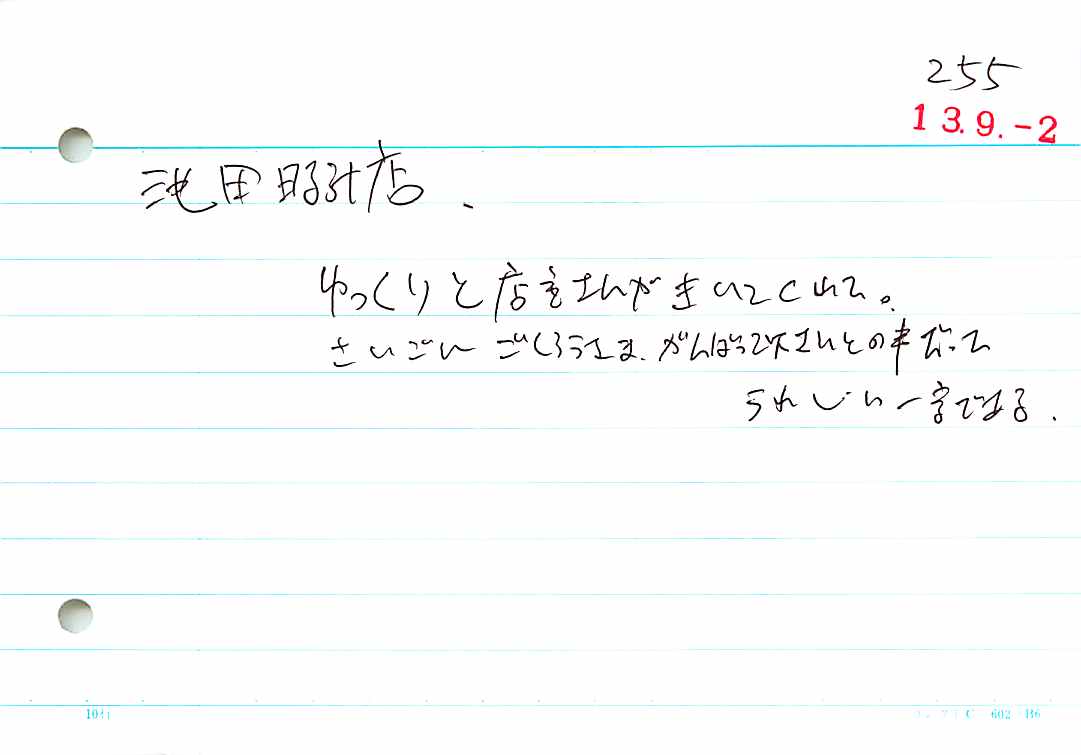 255
13.9.-2
池田時計店.
ゆっくりと店主さんがきいてくれて。
さいごに ごくろうさま、がんばって下さいとの事だって
うれしい一言である.
10行
C 602 B6